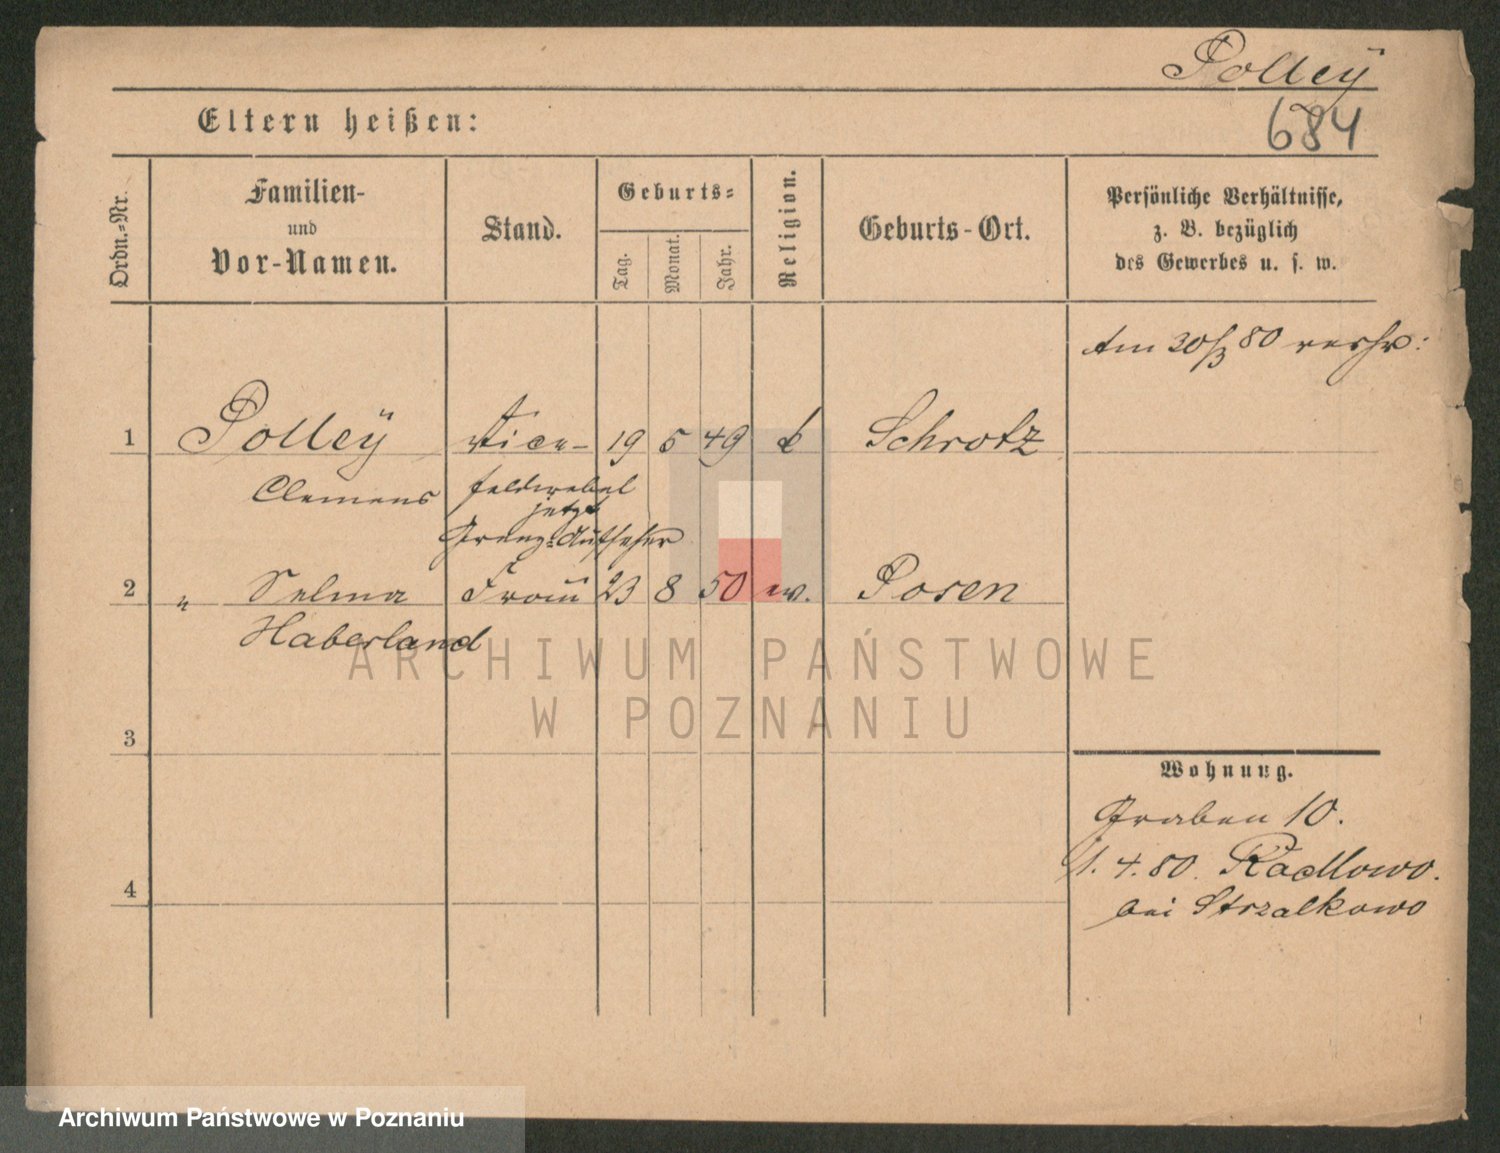 Polleÿ
684
Eltern heißen:
Ordn.-Nr.
Familien-
und
Vor-Namen.
Stand.
Geburts-
Tag.
Monat.
Jahr.
Religion.
Geburts-Ort.
Persönliche Verhältnisse,
z. B. bezüglich
des Gewerbes u. s. w.
Am 30/3 80
1 Polleÿ Vice- 19 5 49 Schrotz
Clemens feldwebel
jetzt
Grenz-Aufseher
2 " Selma Frau 23 8 50 ev. Posen
Haberland
3
4
Wohnung.
Graben 10.
1. 4. 80. Radlowo.
bei Strzalkowo
ARCHIWUM PAŃSTWOWE
W POZNANIU
Archiwum Państwowe w Poznaniu